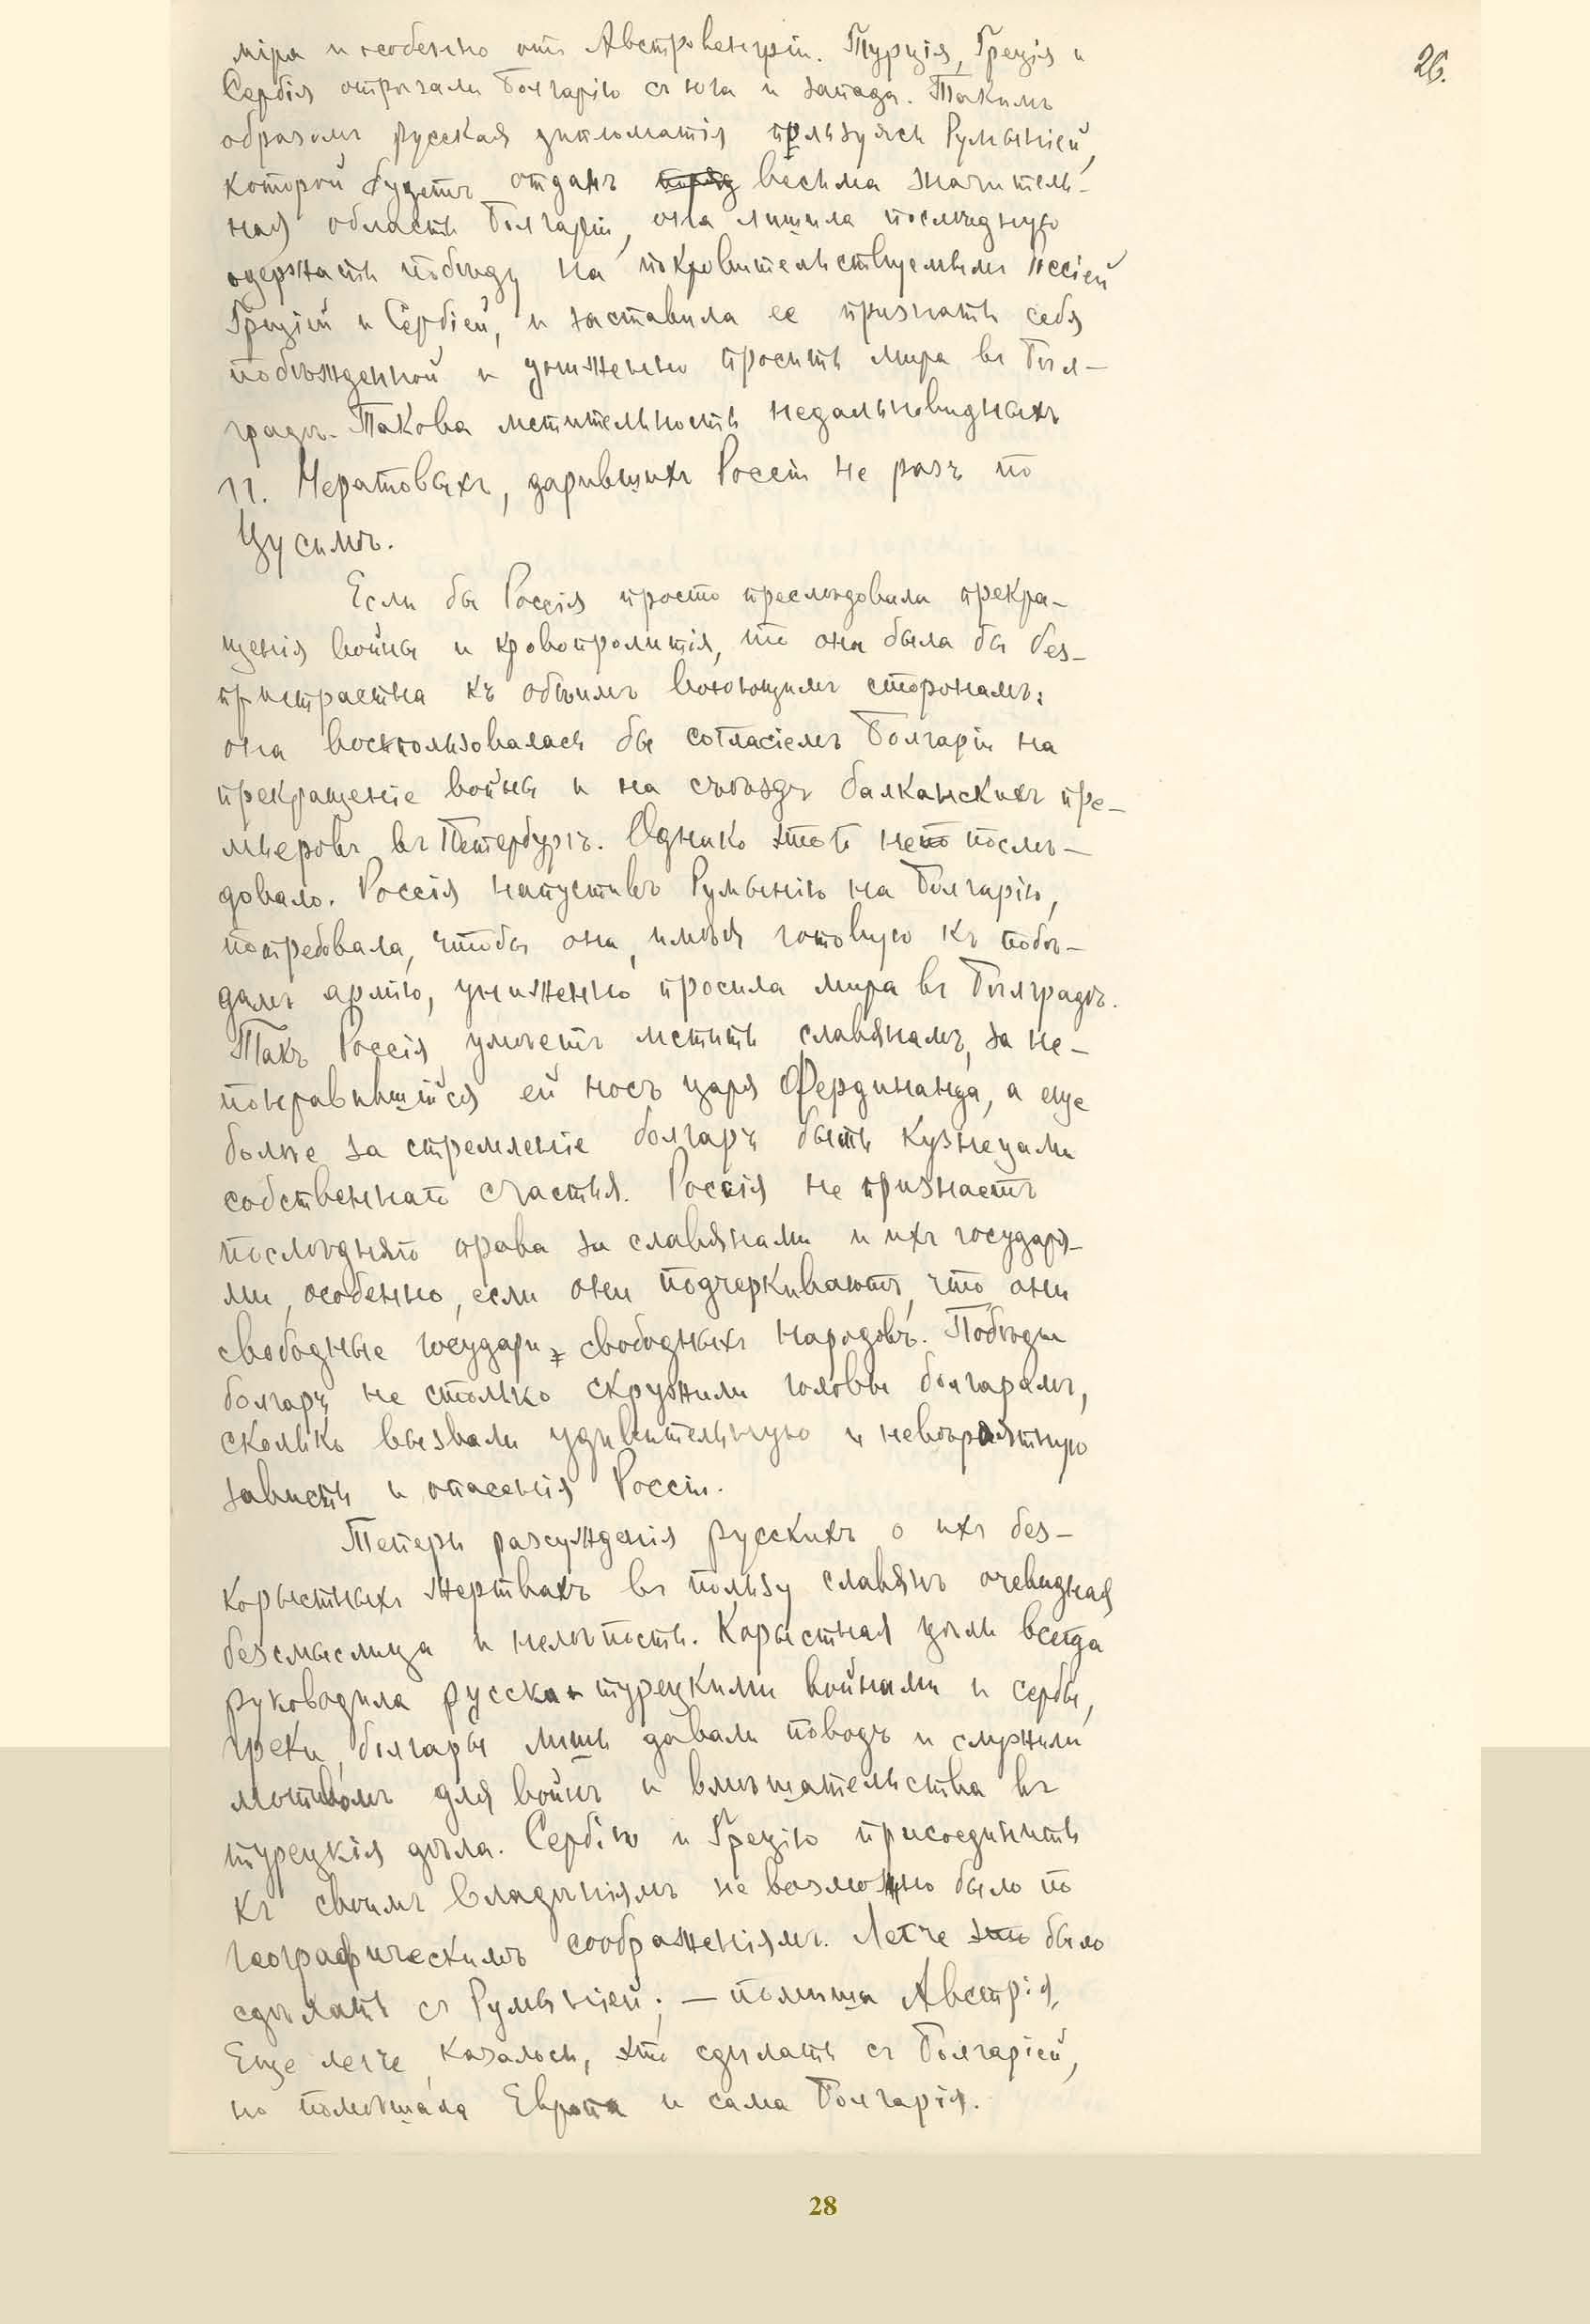 26.
міра и особенно отъ Австровенгріи. Турція, Греція и
Сербія отрѣзали Болгарію съ юга и запада. Такимъ
образомъ русская дипломатія пользуясь Румыніей,
которой будетъ отданъ весьма значитель-
ная область Болгаріи, она лишила послѣднюю
одержать побѣду на покровительствуемыми Россіей
Греціей и Сербіей, и заставила ее признать себя
побѣжденной и униженно просить мира въ Бѣл-
градѣ. Такова мстительность недальновидныхъ
гг. Нератовыхъ, дарившихъ Россіи не разъ по
Цусимѣ.
Если бы Россія просто преслѣдовала прекра-
щенія войны и кровопролитія, то она была бы без-
пристрастна къ обѣимъ воюющимъ сторонамъ:
она воспользовалась бы согласіемъ Болгаріи на
прекращеніе войны и на съѣздъ балканскихъ пре-
мьеровъ въ Петербургѣ. Однако этого не послѣ-
довало. Россія напустивъ Румынію на Болгарію,
потребовала, чтобы она, имѣя готовую къ побѣ-
дамъ армію, униженно просила мира въ Бѣлградѣ.
Такъ Россія умѣетъ мстить славянамъ, за не-
понравившійся ей носъ царя Фердинанда, а еще
болѣе за стремленіе болгаръ быть кузнецами
собственнаго счастья. Россія не признаетъ
послѣдняго права за славянами и ихъ государя-
ми, особенно, если они подчеркиваютъ, что они
свободные государи свободныхъ народовъ. Побѣды
болгаръ не столько скружили головы болгарамъ,
сколько вызвали удивительную и невѣроятную
зависть и опасенія Россіи.
Теперь разсужденія русскихъ о ихъ без-
корыстныхъ жертвахъ въ пользу славянъ очевидная
безсмыслица и нелѣпость. Корыстная цѣль всегда
руководила русско-турецкими войнами и сербы,
греки, болгары лишь давали поводъ и служили
мотивомъ для войнъ и вмѣшательства въ
турецкія дѣла. Сербію и Грецію присоединить
къ своимъ владѣніямъ не возможно было по
географическимъ соображеніямъ. Легче это было
сдѣлать съ Румыніей; — помѣша Австрія.
Еще легче, казалось, это сдѣлать съ Болгаріей,
но помѣшала Европа и сама Болгарія.
28